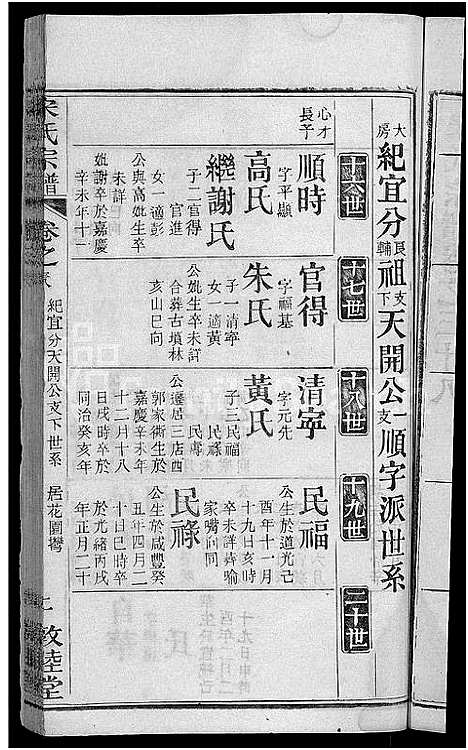 大房紀宜分良輔祖支下天開公一支順字派世系
十六世
十七世
十八世
十九世
二十世
心才長子
順時
字平顯
高氏
繼謝氏
子二官得
官進
女一適彭
公與高妣生卒
未詳
妣謝卒於嘉慶
辛未年十一
官得
字福基
朱氏
子一清寧
女一適黃
公妣生卒未詳
合葬古填林
亥山巳向
清寧
字元先
黃氏
子三民福
民祿
民壽
公遷居三店西
郭家衖生於
嘉慶辛未年
十二月十八
同治癸亥年
民福
公生於道光己
酉年十一月
十九日亥時
卒未詳葬喻
家嘴同向
民祿
公生於咸豐癸
丑年四月二
十日巳時卒
於光緒丙戌
年正月二十
宋氏宗譜
卷之
紀宜分天開公支下世系
居花園灣
敦睦堂